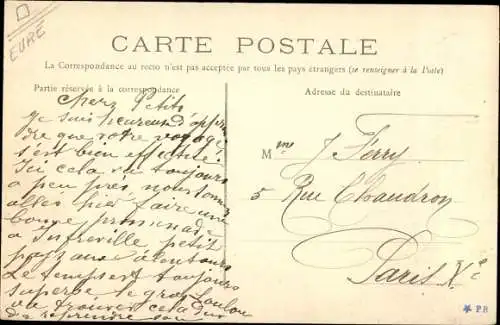 EURE
CARTE POSTALE
La Correspondance au recto n'est pas acceptée par tous les pays étrangers (se renseigner à la Poste)
Partie réservée à la correspondance
Adresse du destinataire
Chers Petits
Je suis heureux d'appren
dre que votre voyage
s'est bien effectué.
Ici cela va toujours
a peu près nous sommes
allés hier faire une
bonne promenade
a Infreville petit
pays aux alentours
Le temps est toujours
superbe le gros Loulou
va trouver cela dur
de reprendre son
Mme J Ferry
5 Rue Chaudron
Paris Xe
P B